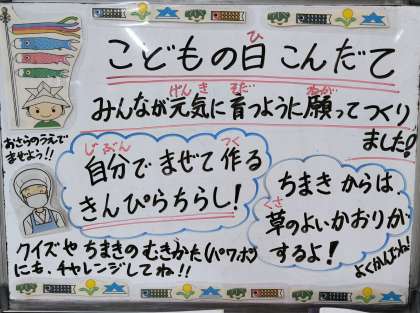 こどもの日こんだて
みんなが元気に育つように願ってつくり
ました!
おさらのうえで
まぜよう!!
自分でまぜて作る
きんぴらちらし!
ちまきからは、
草のよいかおりが
するよ!
よくかんでね!
クイズやちまきのむきかた(パワポ)
にも、チャレンジしてね!!